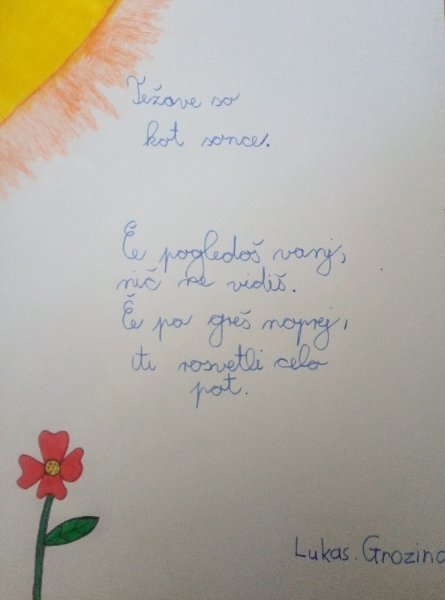 Težave so
kot sonce.
Če pogledaš vanj,
nič ne vidiš.
Če pa greš naprej,
ti rasvetli celo
pot.
Lukas. Grozina